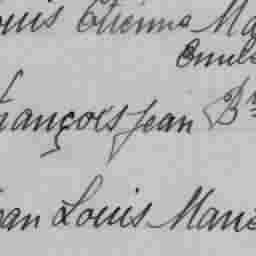 ouis Etienne Ma
Emile
françois Jean Bte
ean Louis Marie